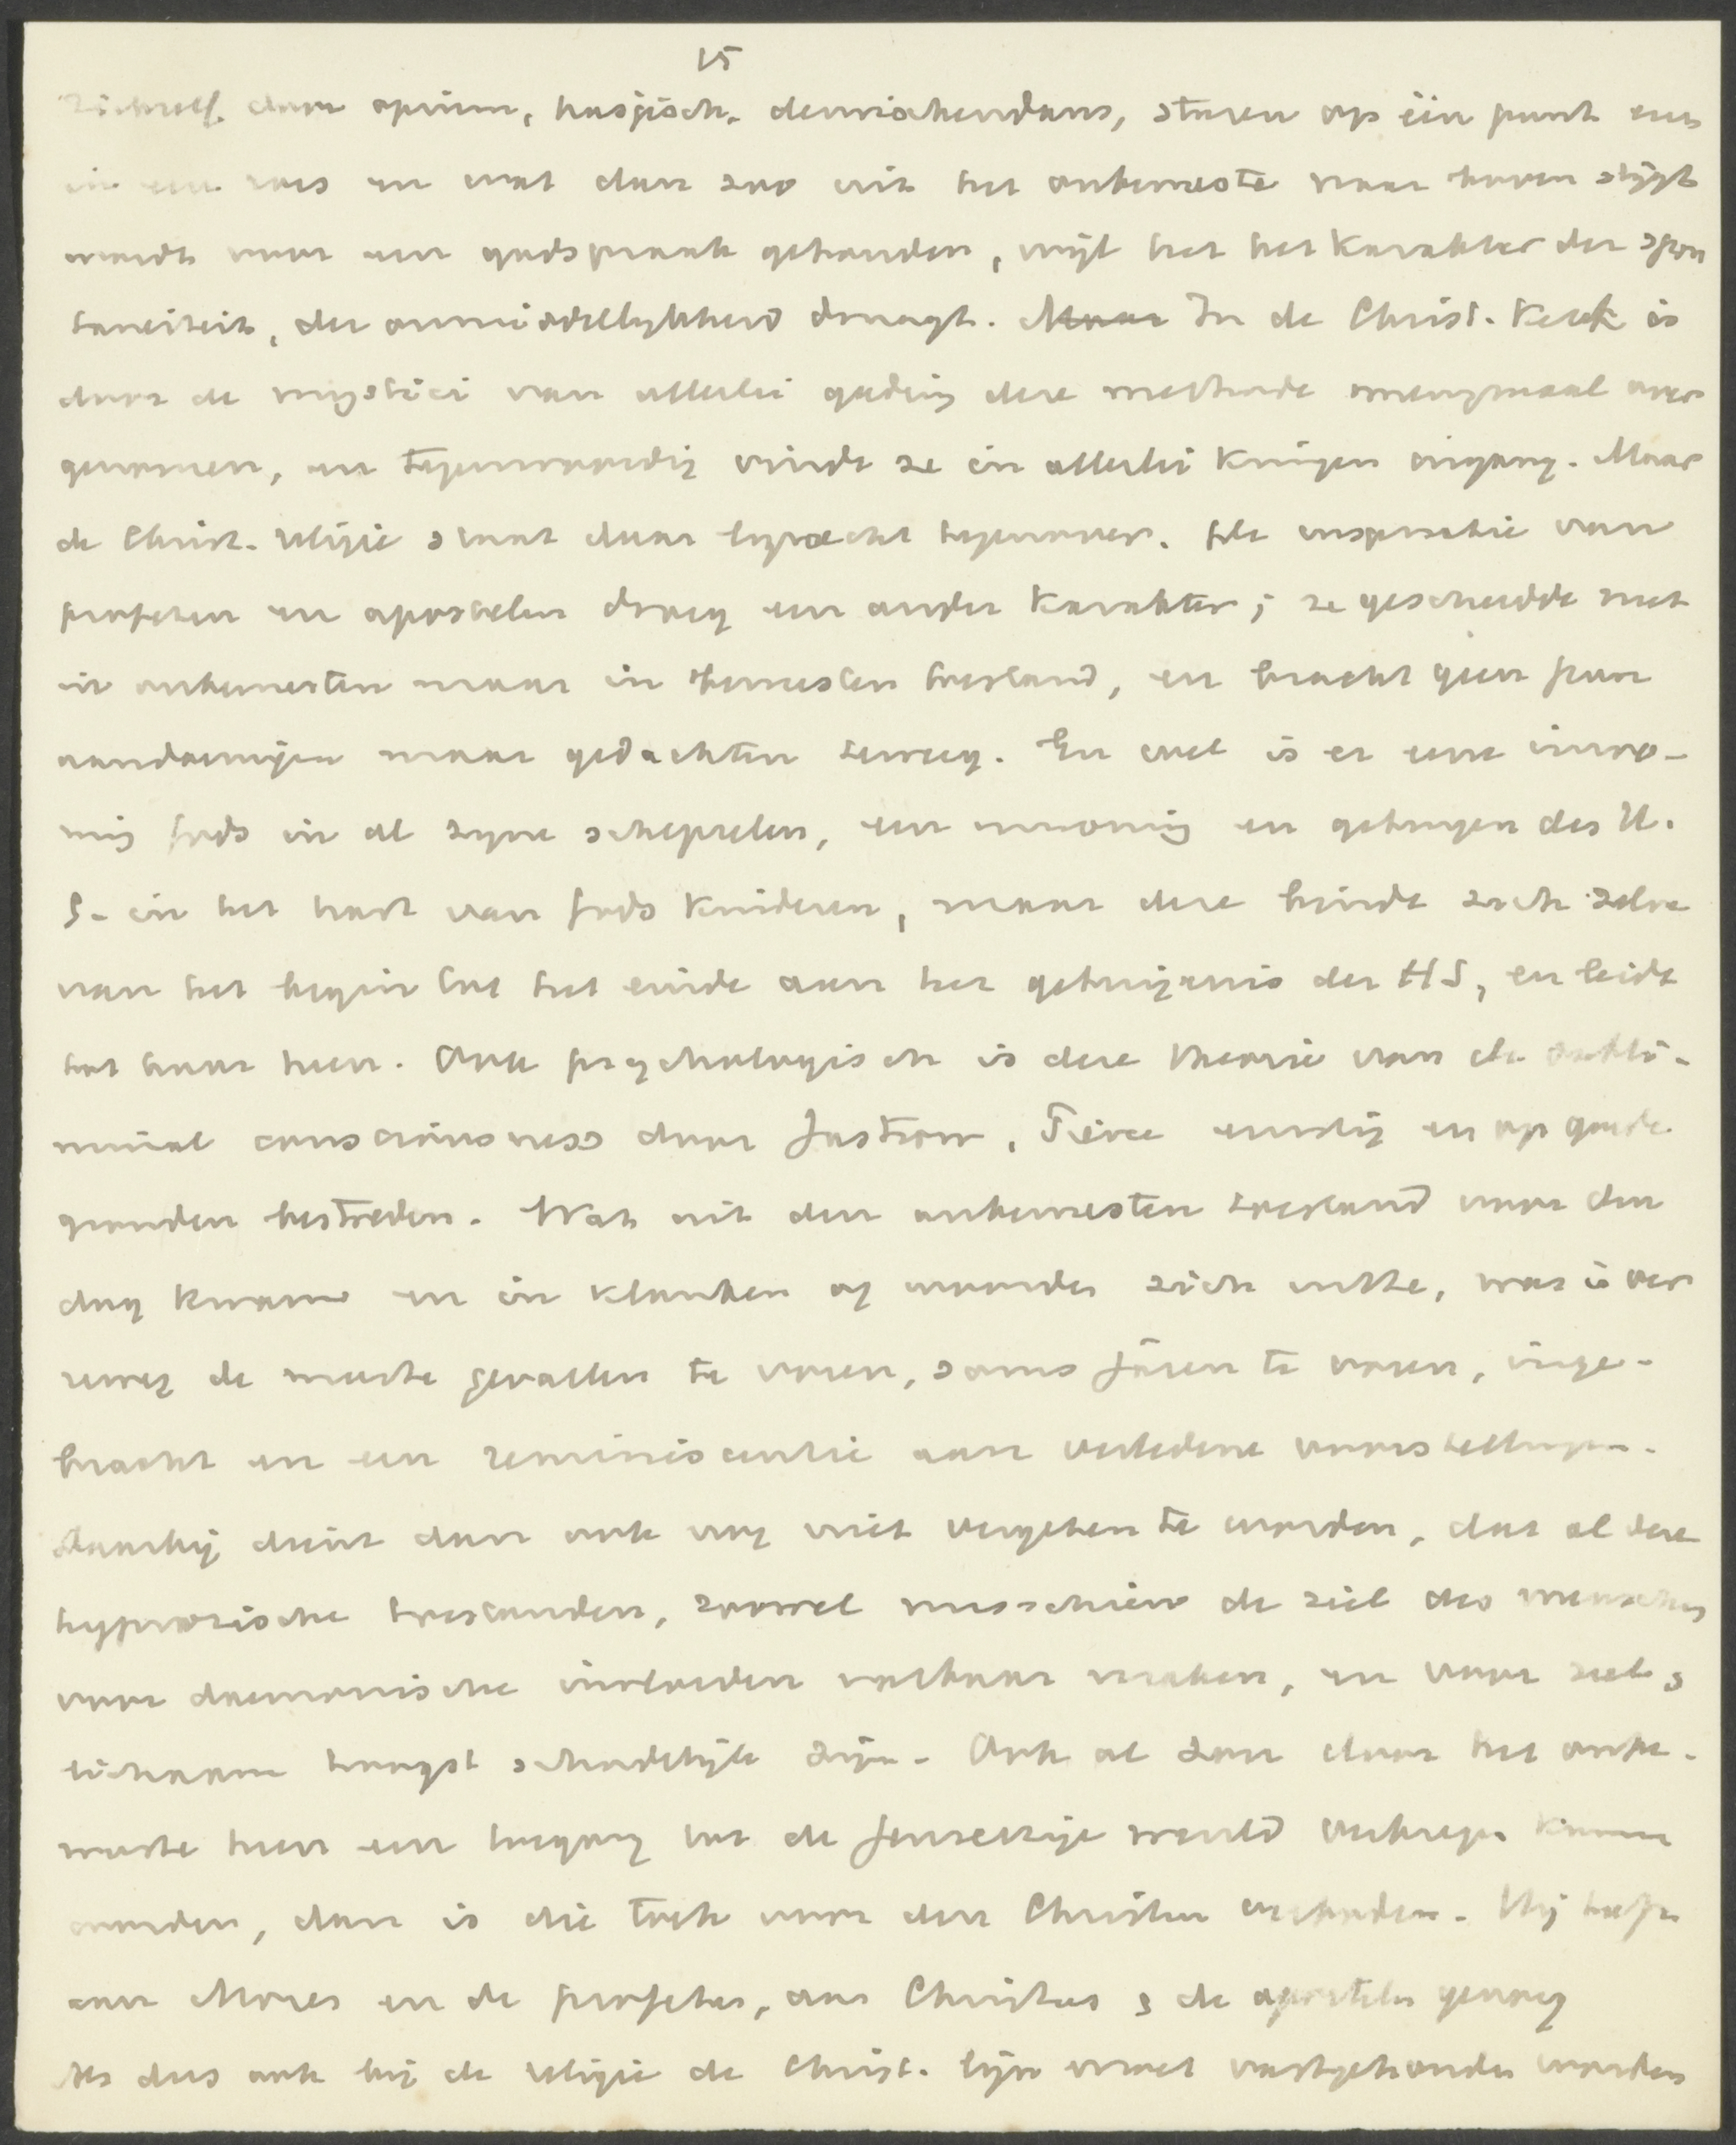 15
zichzelf door opium, hasjisch, derwischendans, staren op één punt enz
in een roes en wat dan zoo uit het onbewuste naar boven stijgt
wordt voor een godspraak gehouden, wijl het het karakter der spon
taneiteit, der onmiddellykheid draagt. Maar In de Christ. Kerk is
door de mystici van allerlei gading deze methode menigmaal over
genomen, en tegenwoordig vindt ze in allerlei kringen ingang. Maar
de Christ. religie staat daar lynrecht tegenover. De inspiratie van
profeten en apostelen droeg een ander karakter; ze geschiedde niet
in onbewusten maar in bewusten toestand, en bracht geen
aandoeningen maar gedachten teweeg. En wel is er eene inwo-
ning Gods in al zyne schepselen, een inwoning en getuigen des H.
G. in het hart van Gods kinderen, maar deze bindt zich zelve
van het begin tot het einde aan het getuigenis der HS, en leidt
tot haar heen. Ook psychologisch is deze theorie van de subli-
minal consciousness door Jastrow, Peirce ernstig en op goede
gronden bestreden. Wat uit den onbewusten toestand voor den
dag kwam en in klanken of woorden zich uitte, was in ver
reweg de meeste gevallen te voren, soms jaren te voren, inge-
bracht en een reminiscentie aan verledene voorstellingen.
Daarbij dient dan ook nog niet vergeten te worden, dat al deze
hypnotische toestanden, zoowel misschien de ziel des menschen
voor daemonische invloeden vatbaar maken, en voor ziel &
lichaam hoogst schadelijk zijn. Ook al zou door het onbe-
wuste heen een toegang tot de jenseitige wereld verkregen kunnen
worden, dan is die toch voor den Christen verboden. Hij heeft
aan Mozes en de profeten, aan Christus & de apostelen genoeg
Als dus ook bij de religie de Christ. lijn moet vastgehouden worden